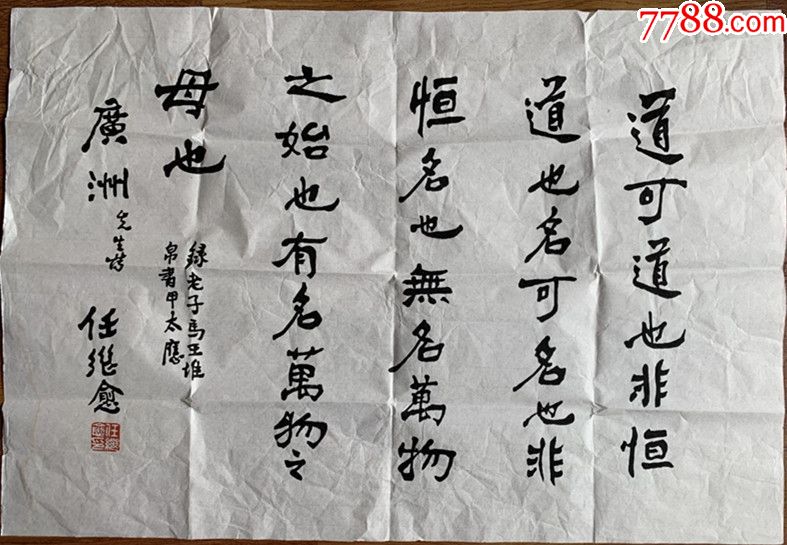 道可道也非恒
道也名可名也非
恒名也無名萬物
之始也有名萬物之
母也
録老子馬王堆
帛書甲本應
廣洲先生嘱
任繼愈
7788.com